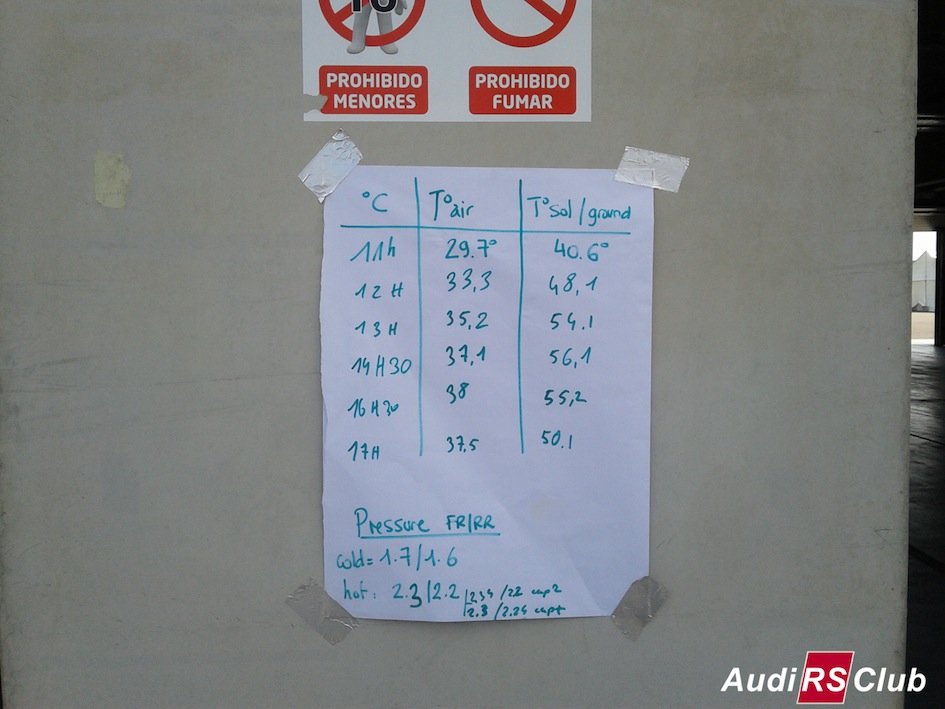 10
PROHIBIDO MENORES
PROHIBIDO FUMAR
°C T°air T°sol/ground
11h 29.7° 40.6°
12H 33,3 48,1
13H 35,2 54.1
14H30 37,1 56,1
16H30 38 55,2
17H 37.5 50.1
Pressure FR/RR
cold= 1.7/1.6
hot: 2.3/2.2
Audi RS Club